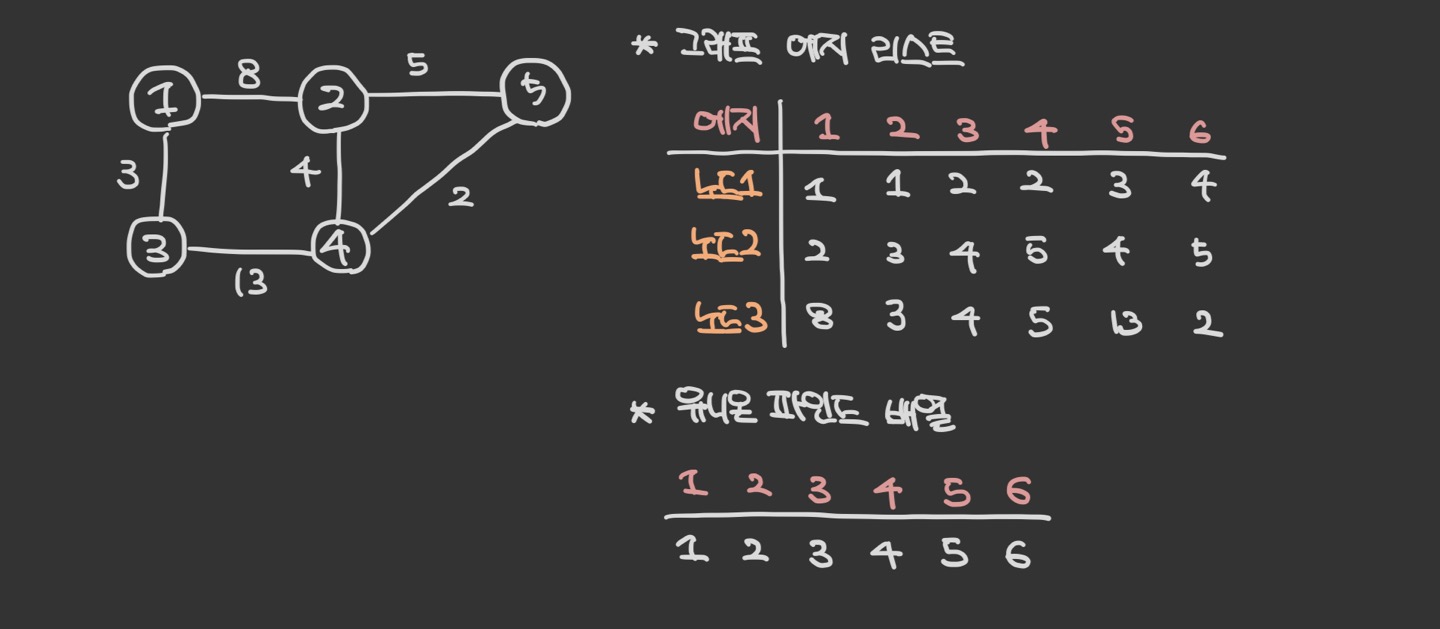 1 8 2 5 5
3 4 2
3 13 4
* 그래프 에지 리스트
에지 1 2 3 4 5 6
노드1 1 1 2 2 3 4
노드2 2 3 4 5 4 5
노드3 8 3 4 5 13 2
* 유니온 파인드 배열
1 2 3 4 5 6
1 2 3 4 5 6